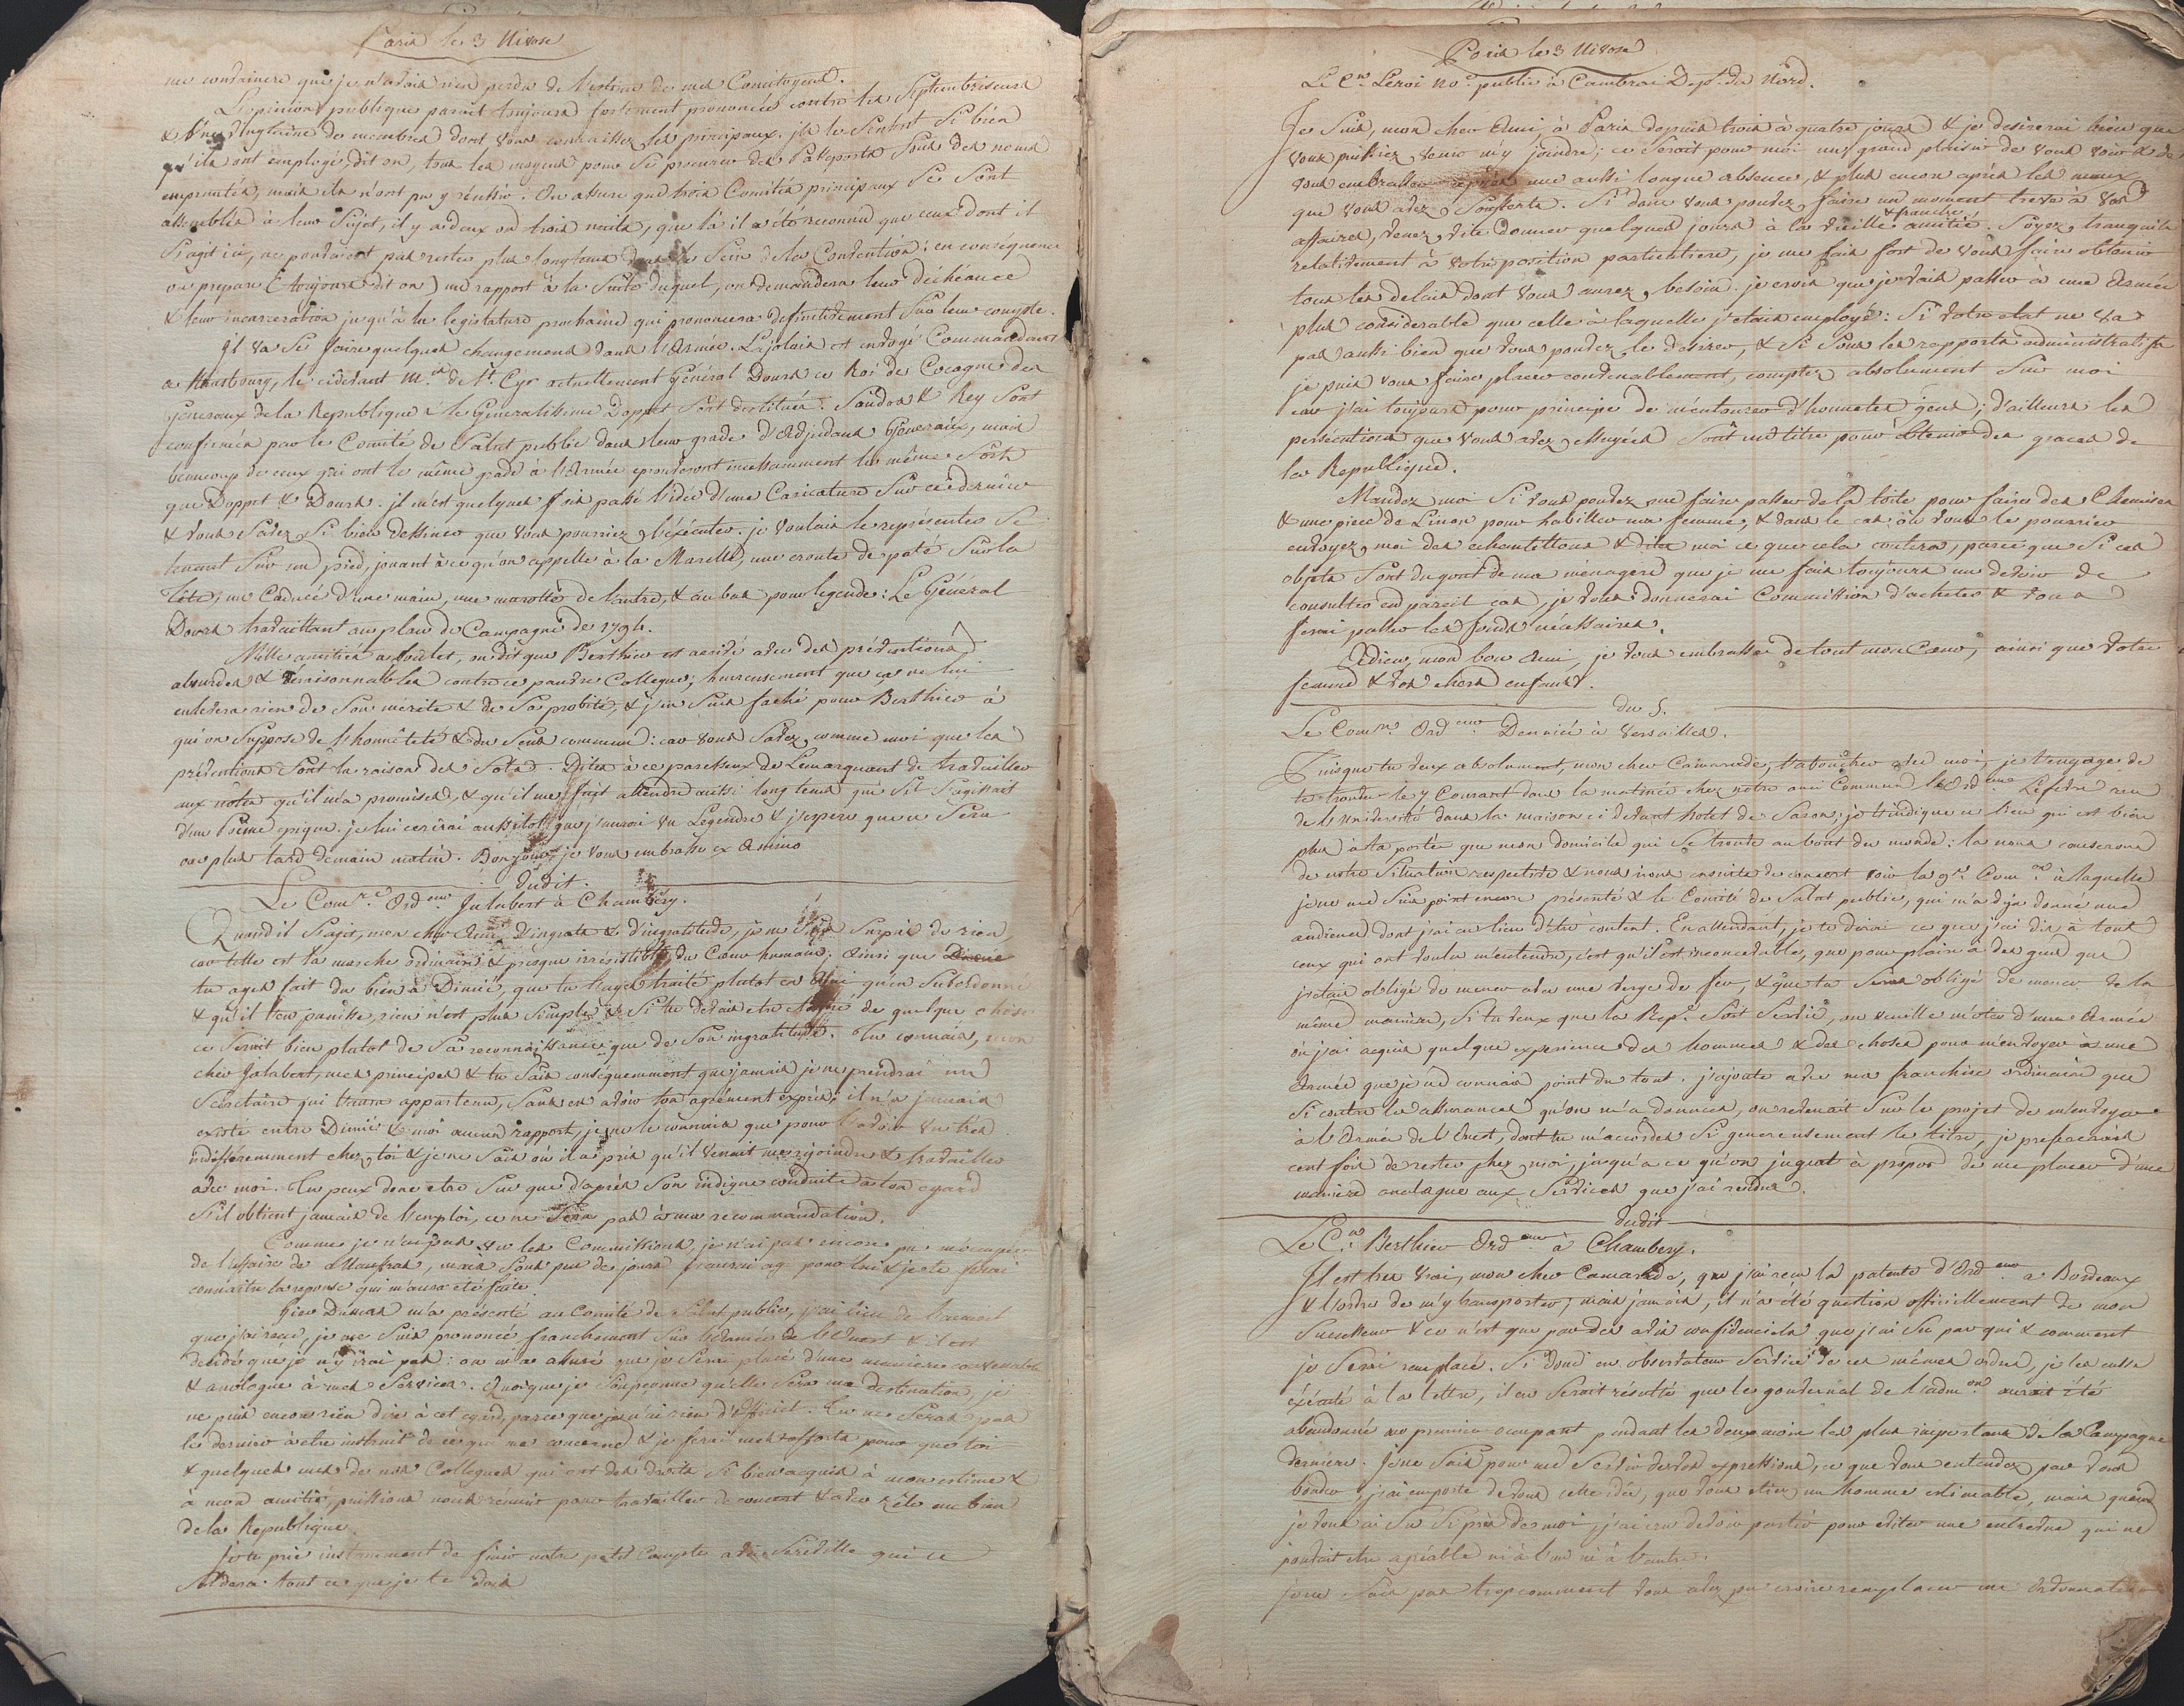 Paris le 3 Nivose
me convaincre que je n'avais rien perdu de l'estime de mes Concitoyens.
L'opinion publique parait toujours fortement prononcée contre les Septembriseurs
& une vingtaine de membres dont vous connaissez les principaux. ils le Sentent Si bien
qu'ils ont employé, dit on, tous les moyens pour Se procurer des Passeports Sous des noms
empruntés, mais ils n'ont pu y réussir. On assure que trois Comités principaux Se Sont
assemblés à leur Sujet, il y a deux ou trois nuits, que là il a été reconnu que ceux dont il
S'agit ici, ne pouvaient pas rester plus longtems dans le Sein de la Convention; en conséquence
on prepare (toujours dit on) un rapport à la Suite duquel, on demandera leur déchéance
& leur incarceration jusqu'à la legislature prochaine qui prononcera définitivement Sur leur compte.
Il va Se faire quelques changemens dans l'Armée. Lajolais est envoyé Commandant
a Strasbourg, le cidevant M.is de St. Cyr actuellement Général Dours ce Roi de Cocagne des
Généraux de la Republique & le Généralissime Doppet Sont destitués. Sandos & Rey Sont
confirmés par le Comité de Salut public dans leur grade d'Adjudans Généraux, mais
beaucoup de ceux qui ont le même grade à l'Armée eprouveront incessamment le même Sort
que Doppet & Dours. il m'est quelques fois passé l'idée d'une Caricature Sur ce dernier
& vous Savez Si bien dessiner que vous pourriez l'éxécuter. je voulais le représenter Se
tenant Sur un pied, jouant à ce qu'on appelle à la Marelle, une croute de paté Sur la
tête, un Caducé d'une main, une marotte de l'autre, & au bas pour legende: Le Général
Dours travaillant au plan de Campagne de 1794.
Mille amitiés a Foulet, on dit que Berthier est arrivé avec des prétentions
absurdes & déraisonnables contre ce pauvre Collegue; heureusement que ca ne lui
enlevera rien de Son merite & de Sa probité, & j'en Suis faché pour Berthier à
qui on Suppose de l'honnêteté & du Sens commun: car vous Savez comme moi que les
prétentions Sont la raison des Sots. Dites à ce paresseux de Lemarquant de travailler
aux notes qu'il m'a promises, & qu'il me fait attendre aussi long tems que S'il S'agissait
d'un Poëme epique. je lui ecrirai aussitot que j'aurai vu Legendre & j'espere que ce Sera
au plus tard demain matin. Bonjour, je vous embrasse ex Animo
dudit.
Le Com.re Ord.eur Jalabert à Chambéry.
Quand il S'agit, mon cher Ami, d'ingrats & d'ingratitude, je ne Suis Surpris de rien,
car telle est la marche ordinaire & presque irrésistible du Cœur humain. Ainsi que
tu ayes fait du bien à Dimié, que tu l'ayes traité plutot en Ami qu'en Subordonné
& qu'il t'en punisse, rien n'est plus Simple & Si tu devais etre étonné de quelque chose
ce Serait bien plutot de Sa reconnaissance que de Son ingratitude. Tu connais, mon
cher Jalabert, mes principes & tu Sais conséquemment que jamais je ne prendrai un
Sécrétaire qui t'aura appartenu, Sans en avoir ton agrément exprès. il n'a jamais
existé entre Dimié & moi aucun rapport, je ne le connais que pour l'avoir vu très
indifferemment chez toi & je ne Sais où il a pris qu'il venait me rejoindre & travailler
avec moi. Tu peux donc etre Sur que d'après Son indigne conduite à ton egard
S'il obtient jamais de l'emploi, ce ne Sera pas à ma recommandation.
Comme je n'ai pas vu les Commissions, je n'ai pas encore pu m'occuper
de l'affaire de Maufras, mais Sous peu de jours j'aurai agi pour lui & je te ferai
connaitre la reponse qui m'aura été faite.
Hier Dumas m'a présenté au Comité de Salut public, j'ai lieu de
que j'ai recu, je me Suis prononcé franchement Sur l'Armée de l'Ouest & il est
décidé que je n'y irai pas: on m'a assuré que je Serai placé d'une maniere convenable
& analogue à mes Services. Quoique je Soupçonne qu'elle Sera ma destination, je
ne puis encore rien dire à cet egard, parce que je n'ai rien d'officiel. Tu ne Seras pas
le dernier à etre instruit de ce qui me concerne & je ferai mes efforts pour que toi
& quelques uns de nos Collegues qui ont des droits Si bien acquis à mon estime &
à mon amitié, puissions nous réunir pour travailler de concert & avec zèle au bien
de la Republique.
Je te prie instamment de finir notre petit Compte avec Sérédille qui te
Soldera tout ce que je te dois
Paris le 3 Nivose
Le C.en Leroi No.re public à Cambrai Dep.t du Nord.
Je Suis, mon cher Ami, à Paris depuis trois à quatre jours & je desirerai bien que
vous puissiez venir m'y joindre; ce Serait pour moi un grand plaisir de vous voir & de
vous embrasser après une aussi longue absence, & plus encore après les maux
que vous avez Soufferts. Si donc vous pouvez faire un moment treve à vos
affaires, venez vite donner quelques jours à la vieille & franche amitié. Soyez tranquile
relativement à votre position particuliere, je me fais fort de vous faire obtenir
tous les delais dont vous aurez besoin. je crois que je vais passer à une Armée
plus considerable que celle à laquelle j'etais employé: Si votre etat ne va
pas aussi bien que vous pouvez le desirer, & Si Sous les rapports administratifs
je puis vous faire placer convenablement, comptez absolument Sur moi
car j'ai toujours pour principe de m'entourer d'honnetes gens; d'ailleurs les
persécutions que vous avez essuyées Sont un titre pour obtenir des graces de
la Republique.
Mandez moi Si vous pouvez me faire passer de la toile pour faire des Chemises
& une piece de Linon pour habiller ma femme, & dans le cas où vous le pourriez
envoyez moi des echantillons & dites moi ce que cela coutera, parce que Si ces
objets Sont du gout de ma ménagere que je me fais toujours un devoir de
consulter en pareil cas, je vous donnerai Commission d'acheter & vous
ferai passer les fonds nécessaires.
Adieu, mon bon Ami, je vous embrasse de tout mon Cœur, ainsi que votre
femme & vos chers enfans.
du 5.
Le Com.re Ord.eur Dennié à Versailles.
Puisque tu veux absolument, mon cher Camarade, t'aboucher avec moi, je t'engage de
te trouver le 7 Courant dans la matinée chez notre ami Commun l'Ord.eur Lefevre rue
de l'Université dans la maison ci devant hotel de Saxon; je t'indique ce lieu qui est bien
plus à ta portée que mon domicile qui Se trouve au bout du monde: la nous causerons
de notre Situation respective & nous irons ensuite de concert voir la 9.e Com.on à laquelle
je ne me Suis point encore présenté & le Comité de Salut public, qui m'a déja donné une
audience dont j'ai eu lieu d'être content. En attendant, je te dirai ce que j'ai dis à tout
ceux qui ont voulu m'entendre, c'est qu'il est inconcevable, que pour plaire à des gens que
j'etais obligé de mener avec une verge de fer, & que tu Seras obligé de mener de la
même maniere, Si tu veux que la Rep.e Soit Servie, on veuille m'oter d'une Armée
où j'ai acquis quelque experience des hommes & des choses pour m'envoyer à une
Armée que je ne connais point du tout. j'ajoute avec ma franchise ordinaire que
Si contre les assurances qu'on m'a données, on revenait Sur le projet de m'envoyer
à l'Armée de l'Ouest, dont tu m'accordes Si genereusement le titre, je prefererais
cent fois de rester chez moi, jusqu'a ce qu'on jugeat à propos de me placer d'une
maniere analogue aux Services que j'ai rendus.
dudit
Le C.en Berthier Ord.eur à Chambery.
Il est tres vrai, mon cher Camarade, que j'ai recu la patente d'Ord.eur a Bordeaux
& l'ordre de m'y transporter; mais jamais, il n'a été question officiellement de mon
Successeur & ce n'est que par des avis confidenciels que j'ai Su par qui & comment
je Serai remplacé. Si donc en observateur Servile de ces mêmes ordres, je les eusse
éxécuté à la lettre, il en Serait résulté que le gouvernal de l'adm.on aurait été
abandonné au premier occupant pendant les deux mois les plus importans de la Campagne
derniere. Je ne Sais pour me Servir de vos expressions, ce que vous entendez par vous
bouder, j'ai emporté de vous cette idée, que vous etiez un homme estimable, mais quand
je vous ai Su Si près de moi, j'ai cru devoir partir pour eviter une entrevue qui ne
pouvait etre agréable ni à l'un ni à l'autre.
Je ne Sais pas trop comment vous avez pu croire remplacer un Ordonnateur